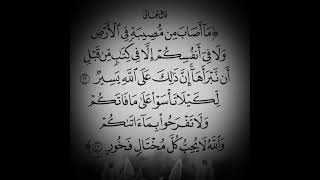 قال تعالى
﴿ مَآ أَصَابَ مِن مُّصِيبَةٍ فِي ٱلْأَرْضِ
وَلَا فِيٓ أَنفُسِكُمْ إِلَّا فِي كِتَٰبٍ مِّن قَبْلِ
أَن نَّبْرَأَهَآ إِنَّ ذَٰلِكَ عَلَى ٱللَّهِ يَسِيرٌ ٢٢
لِّكَيْلَا تَأْسَوْا۟ عَلَىٰ مَا فَاتَكُمْ
وَلَا تَفْرَحُوا۟ بِمَآ ءَاتَىٰكُمْ
وَٱللَّهُ لَا يُحِبُّ كُلَّ مُخْتَالٍ فَخُورٍ ٢٣ ﴾